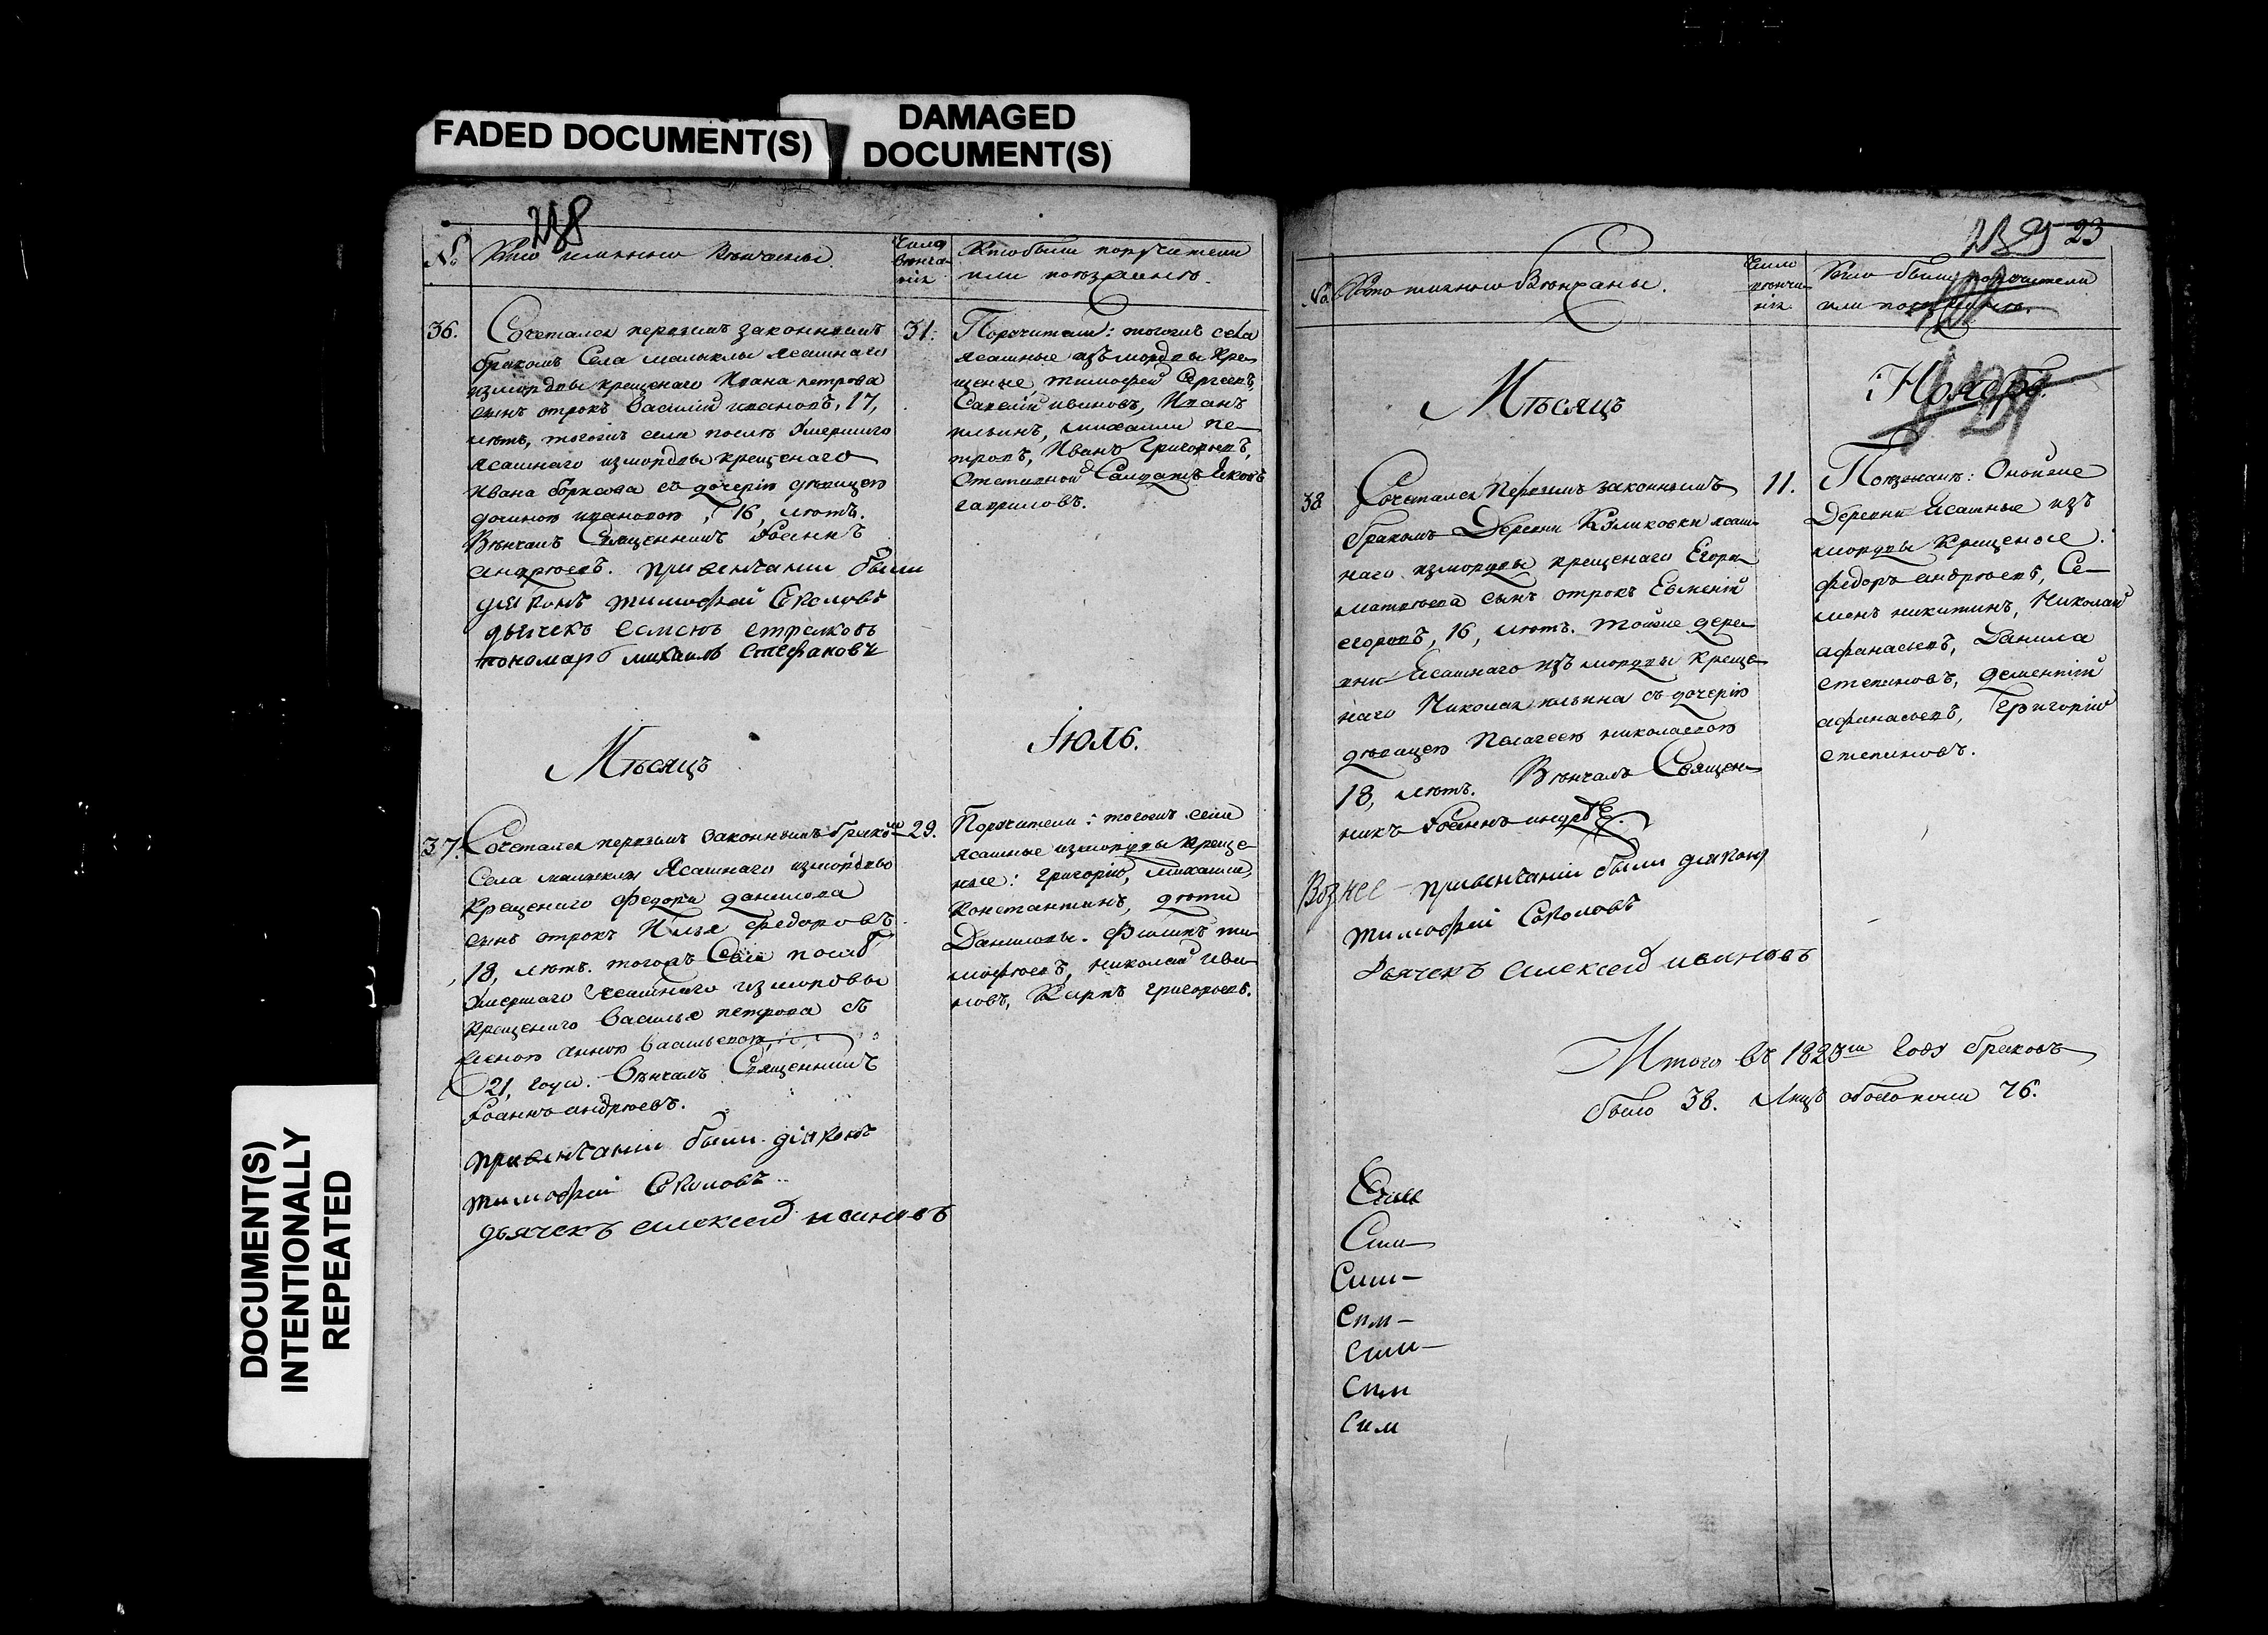 FADED DOCUMENT(S)
DAMAGED
DOCUMENT(S)
DOCUMENT(S)
INTENTIONALLY
REPEATED
238
№
Кто имянно венчаны.
Число
венча
нія
Кто были поручители
или поезжаня.
36.
Сочетался первымъ законнымъ
бракомъ Села малыклы ясашнаго
измордвы крещенаго Ивана петрова
сынъ отрокъ Василій ивановъ, 17,
летъ, тогожъ села после умершаго
ясашнаго измордвы крещенаго
Ивана борисова съ дочерію девицею
ивановою, 16, летъ.
Венчалъ Священникъ Іоаннъ
андреевъ. привенчаніи были
діяконъ тимофей Соколовъ
дьячекъ семенъ стрелковъ
пономарь михаилъ стефановъ
31.
Поручители: тогожъ села
ясашные изъ мордвы кре-
щеные, тимофей Сергеевъ,
Савелій ивановъ, Иванъ
ильинъ, михаила пе-
тровъ, Иванъ Григорьевъ,
Отставной Салдатъ Яковъ
гавриловъ.
Месяцъ
Іюль.
37.
Сочетался первымъ законнымъ бракомъ
Села малыклы Ясашнаго измордвы
Крещенаго федора данилова
сынъ отрокъ Илья федоровъ
18, летъ. тогожъ Села после
умершаго Ясашнаго измордвы
крещенаго Василья петрова съ
женою анною Васильевою,
21, года. Венчалъ Священникъ
Іоаннъ андреевъ.
привенчаніи были діяконъ
тимофей Соколовъ
дьячекъ алексей ивановъ
29.
Поручители: тогожъ села
ясашные измордвы креще-
ные: григорій, михаила,
константинъ, дети
Даниловы. Филипъ ти-
мофеевъ, николай ива-
новъ, Карпъ григорьевъ.
239 23
№
Кто имянно Венчаны.
Число
венча
нія
Кто были поручители
или поезжаня.
Месяцъ
Ноябрь.
38
Сочетался Первымъ законнымъ
бракомъ Деревни Куликовки ясаш-
наго измордвы крещенаго Егора
матвеева сынъ отрокъ Евгеній
егоровъ, 16, летъ. тойже дере-
вни Ясашнаго изъ мордвы креще-
наго Николая ильина съ дочерію
девицею Пелагеею николаевою
18, летъ. Венчалъ Священ-
никъ Іоаннъ андреевъ.
привенчаніи были діяконъ
тимофей Соколовъ
Дьячекъ алексей ивановъ
11.
Поезжане: Онойже
Деревни Ясашные изъ
мордвы Крещеные:
федоръ андреевъ, Се-
менъ никитинъ, Николай
афанасьевъ, Данила
степановъ, дементій
афанасьевъ, Григорій
степановъ.
Итого въ 1823м Году браковъ
было 38. Лицъ обоего пола 76.
Сим
Сим
Сим
Сим
Сим
Сим